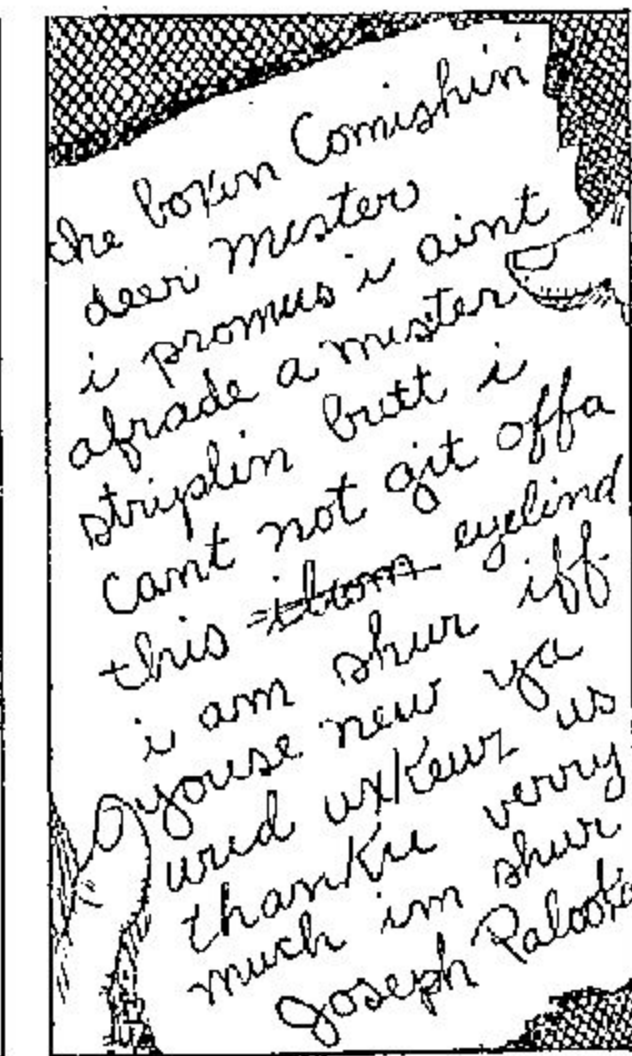 the boxin Comishin
deer mister
i promus i aint
afrade a mister
striplin butt i
cant not git offa
this ilwn eyelind
i am shur iff
youse new ya
wud uxkewz us
thanku verry
much im shur
Joseph Palooka